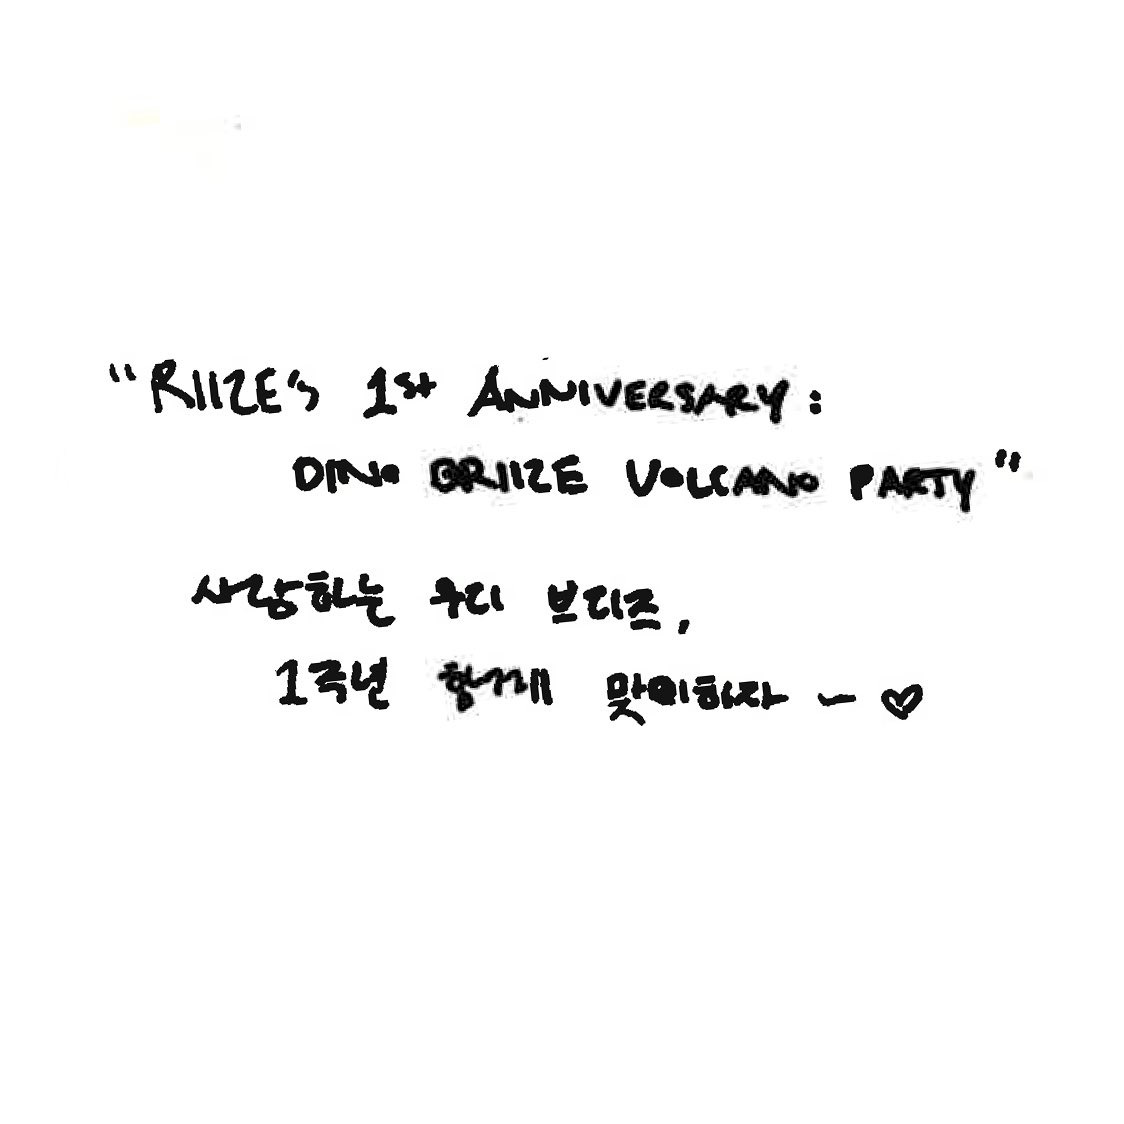 "RIIZE's 1st ANNIVERSARY:
DINO BRIIZE VOLCANO PARTY"
사랑하는 우리 브리즈,
1주년 함께 맞이하자 ~ ♡